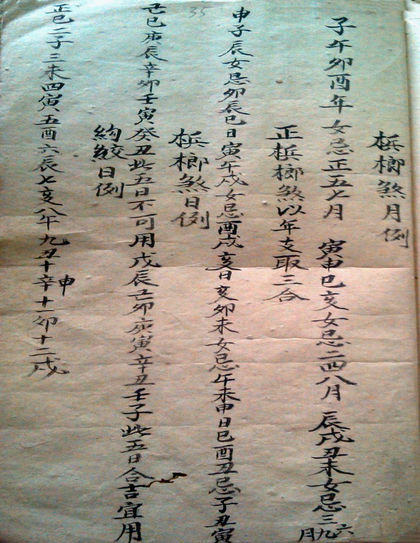 梹榔煞月例
子午卯酉年女忌正五七月 寅申巳亥女忌二四八月 辰戌丑未女忌三六九月
正梹榔煞以年支取三合
申子辰女忌卯辰巳日寅午戌女忌酉戌亥日亥卯未女忌午未申日巳酉丑忌子丑寅
梹榔煞日例
己巳庚辰辛卯壬寅癸丑此五日不可用戊辰己卯庚寅辛丑壬子此五日合吉宜用
絞日例
正巳二子三未四寅五酉六辰七亥八午九丑十申十一卯十二戌
35